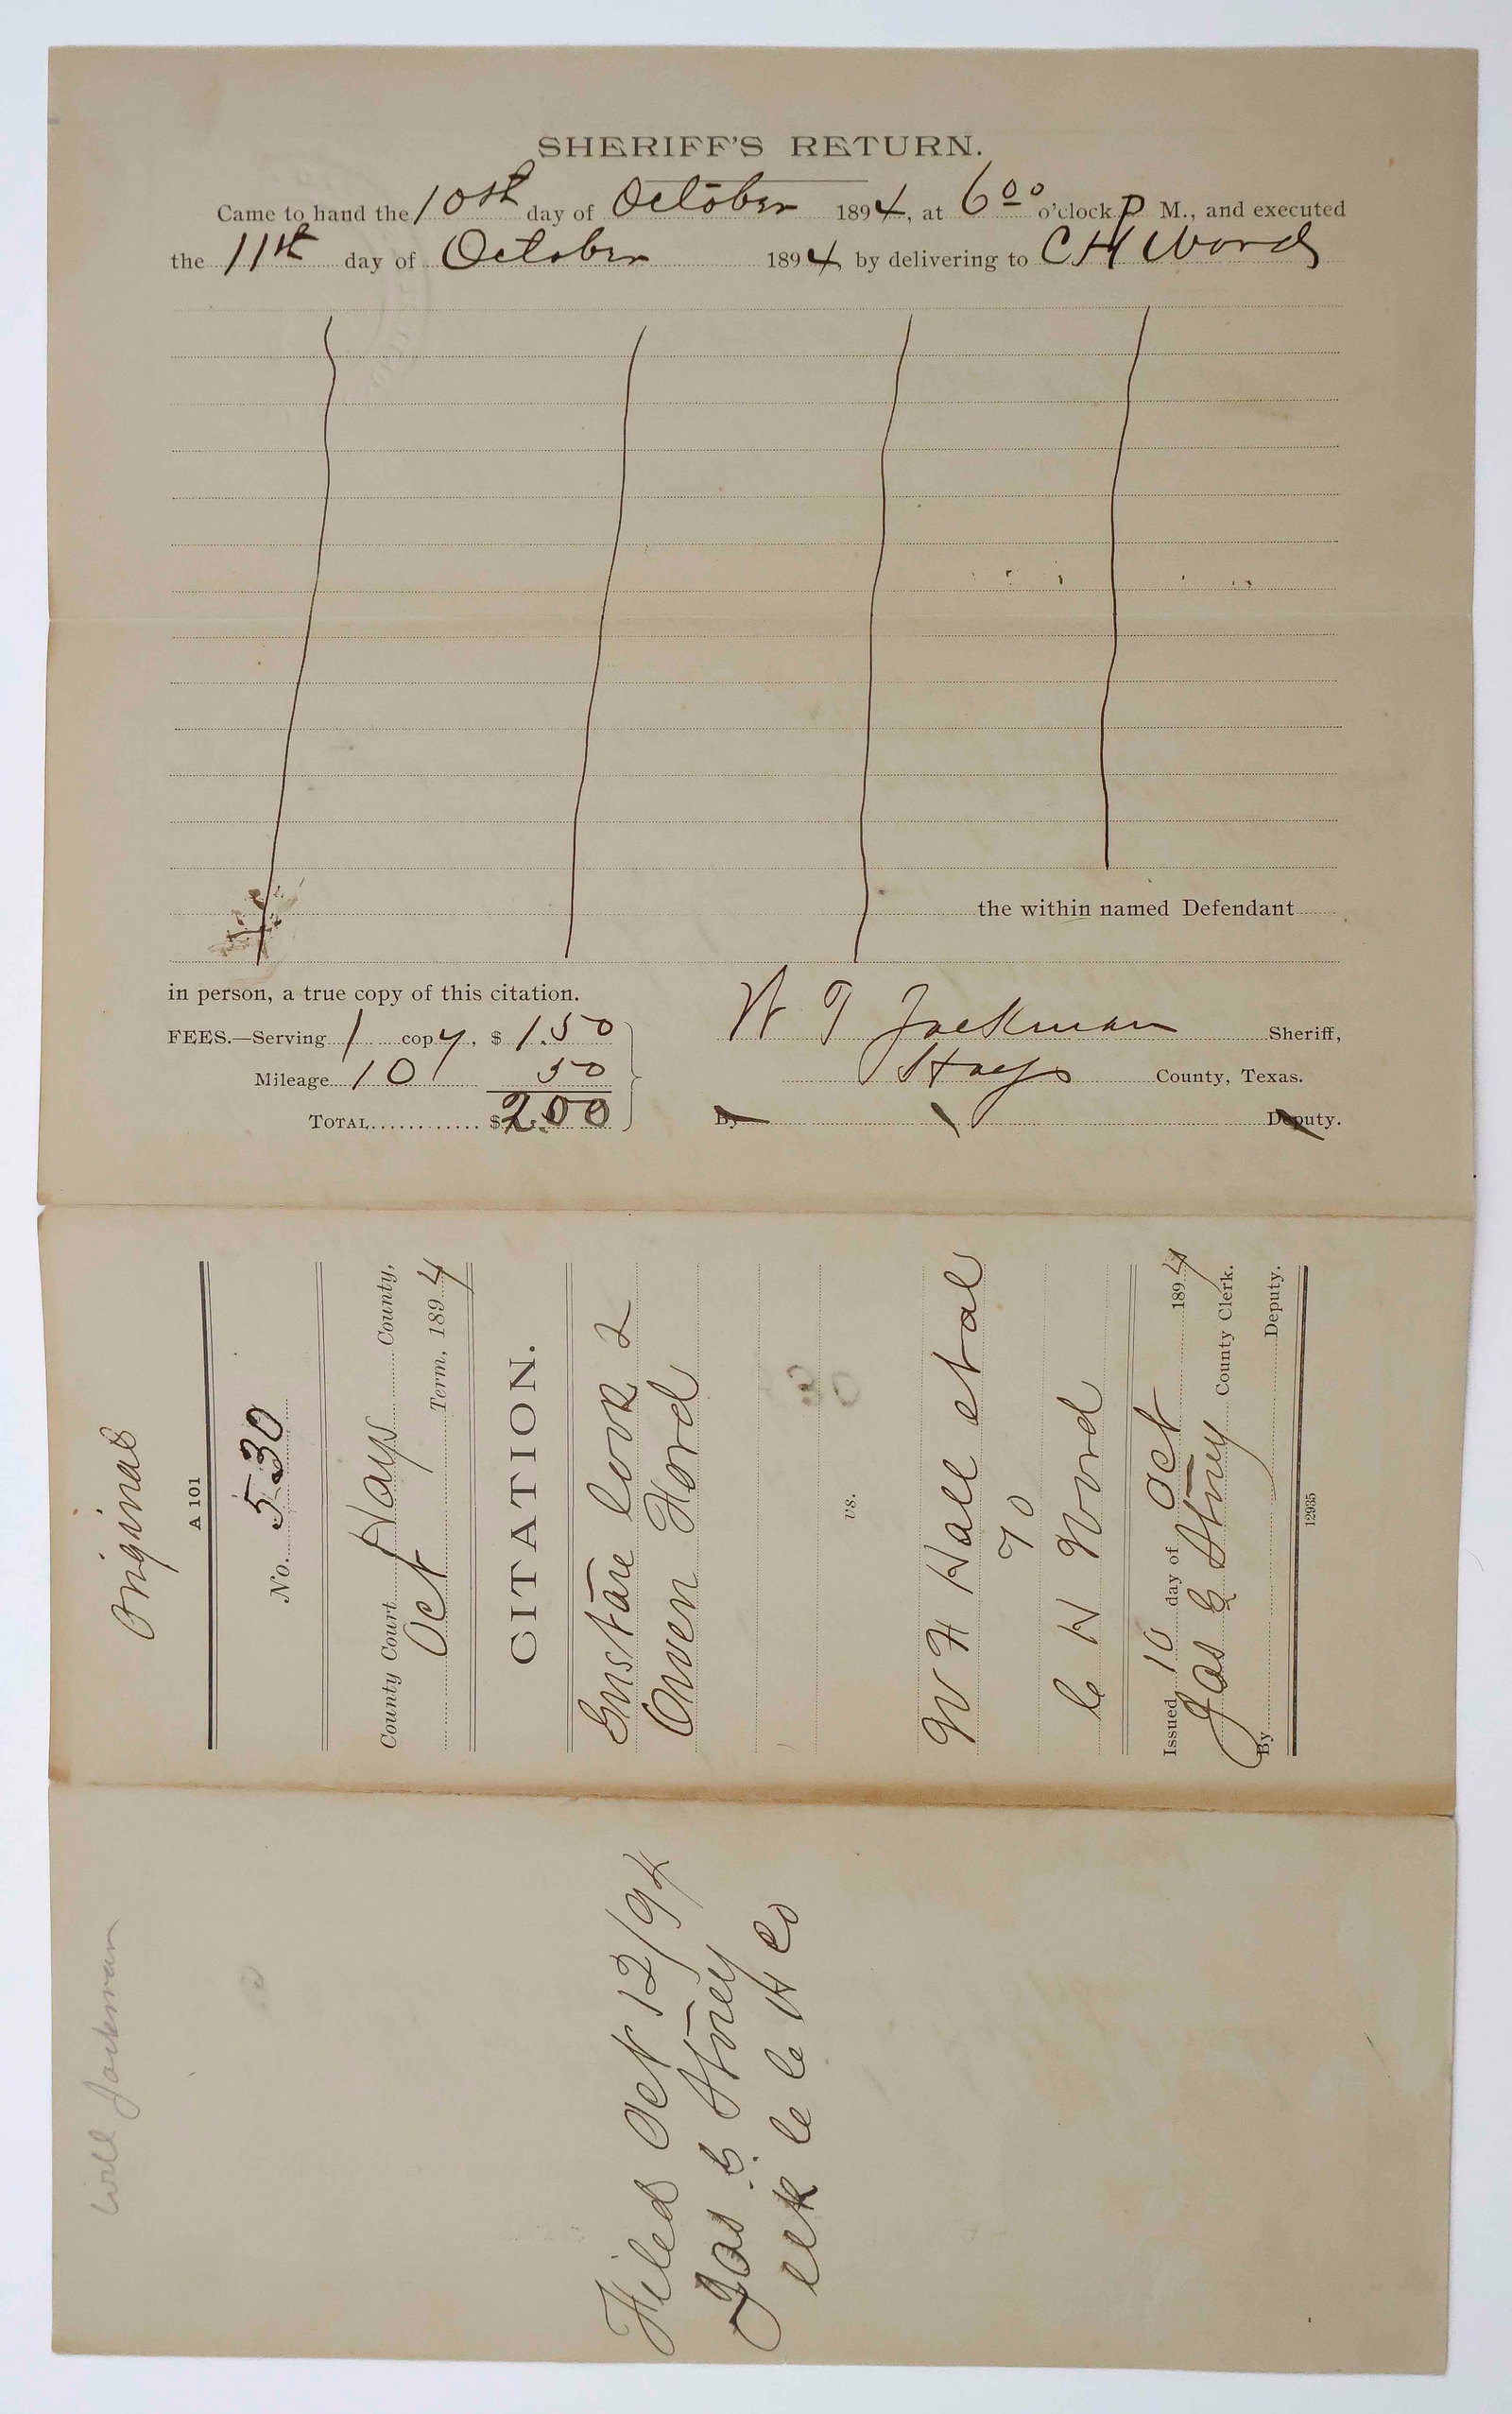 SHERIFF'S RETURN.
Came to hand the 10th day of October 1894, at 6 00 o'clock P M., and executed
the 11th day of October 1894, by delivering to C H Word
the within named Defendant
in person, a true copy of this citation.
FEES.—Serving 1 copy, $ 1.50
Mileage 10 50
TOTAL............ $ 2.00
W T Jackman Sheriff,
Hays County, Texas.
By Deputy.
Original
A 101
No. 530
County Court Hays County,
Oct Term, 1894
CITATION.
Gustave Cook &
Owen Ford
vs.
W H Hall et al
To
C H Word
Issued 10 day of Oct 1894
Jas G Storey County Clerk.
By Deputy.
12935
Filed Oct 12/94
Jas G Storey
Clk C C H Co
Will Jackman